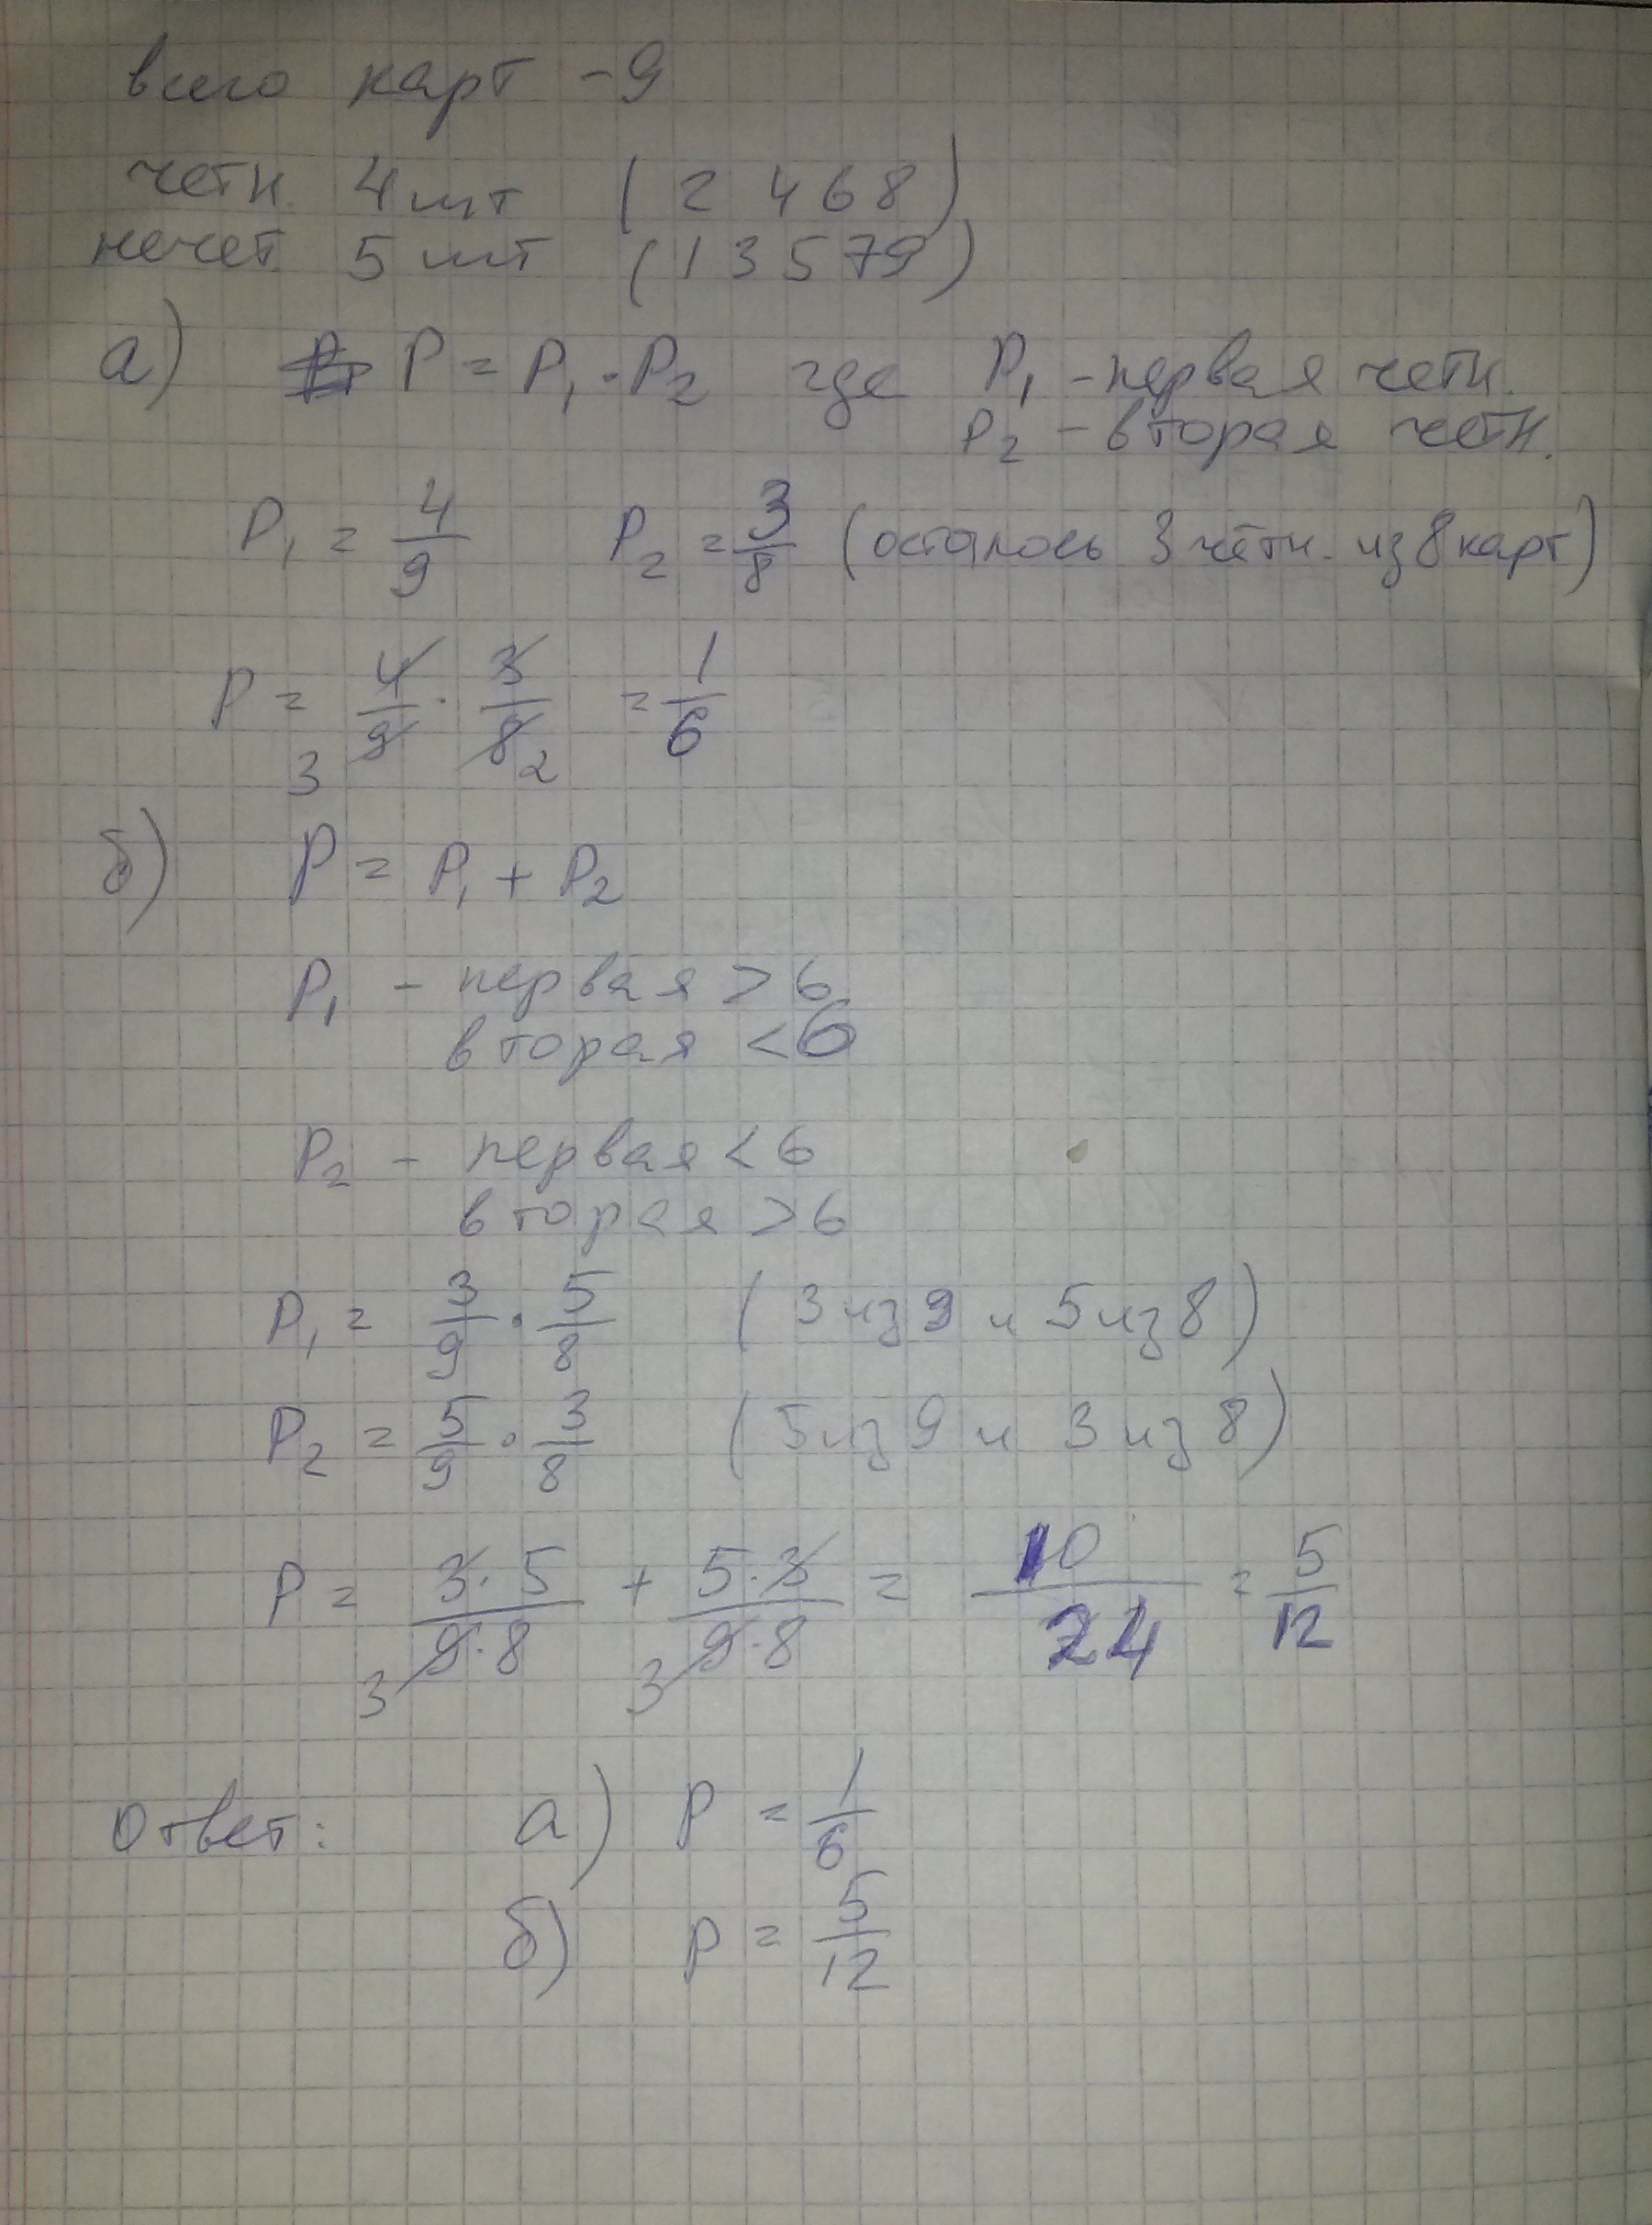 всего карт - 9
четн. 4 шт (2 4 6 8)
нечет. 5 шт (1 3 5 7 9)
а) P = P₁ · P₂ где P₁ - первая четн.
P₂ - вторая четн.
P₁ = 4/9 P₂ = 3/8 (осталось 3 четн. из 8 карт)
P = 4/9 · 3/8 = 1/6
3 2
б) P = P₁ + P₂
P₁ - первая > 6
вторая < 6
P₂ - первая < 6
вторая > 6
P₁ = 3/9 · 5/8 (3 из 9 и 5 из 8)
P₂ = 5/9 · 3/8 (5 из 9 и 3 из 8)
P = 3·5/9·8 + 5·3/9·8 = 10/24 = 5/12
3 3
Ответ: а) P = 1/6
б) P = 5/12